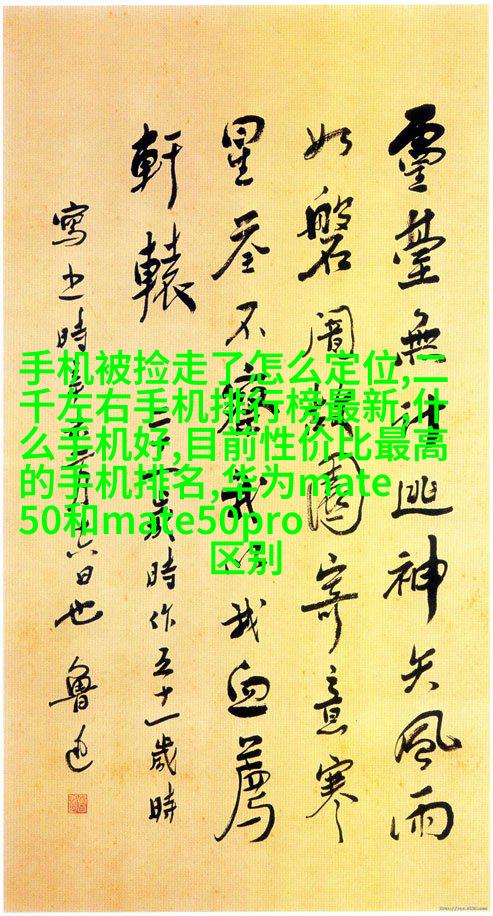 靈臺無計逃神矢風雨
如磐闇故園寄意寒
星荃不察我以我血薦
軒轅 二十一歲時作五十一歲時
寫之時辛未二月十六日也 魯迅
手机被捡走了怎么定位,二
千左右手机排行榜最新,什
么手机好,目前性价比最高
的手机排名,华为mate
50和mate50pro
区别